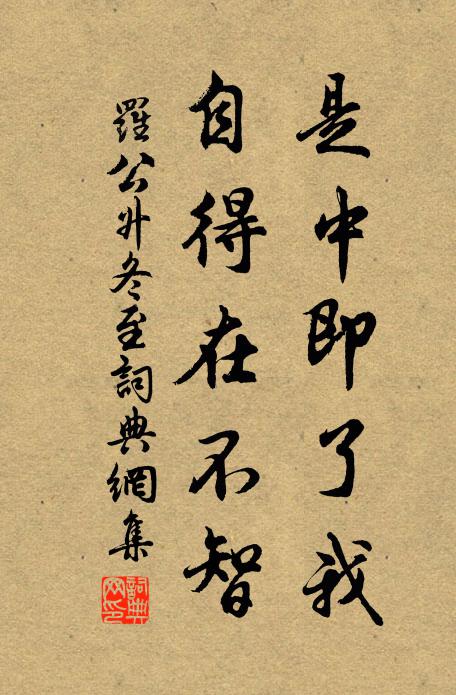 是中即了我
自得在不智
羅公升冬至詞典網集
詞典網印